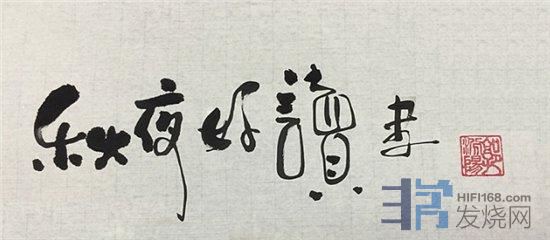 秋夜好讀书
HIFI168.com
发烧网